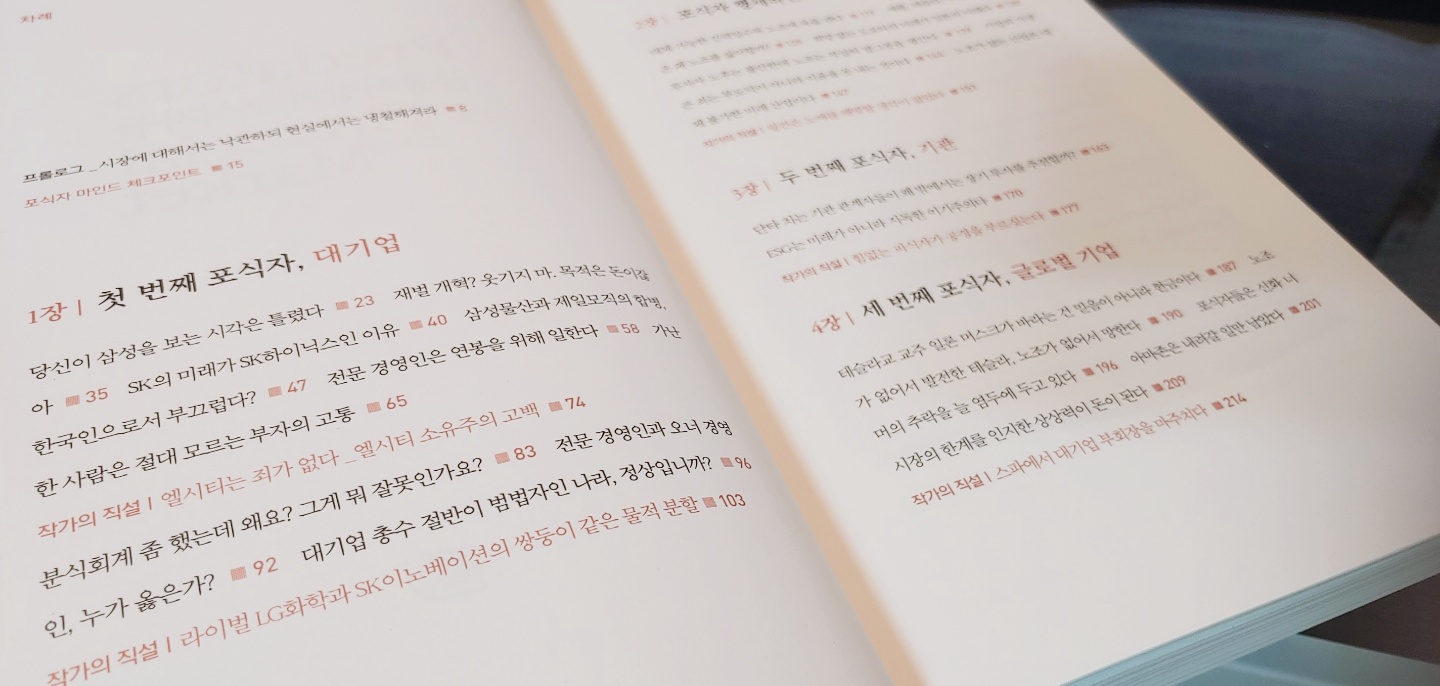 차례
프롤로그 _시장에 대해서는 낙관하되 현실에서는 냉철해져라 ■ 8
포식자 마인드 체크포인트 ■ 15
1장 | 첫 번째 포식자, 대기업
당신이 삼성을 보는 시각은 틀렸다 ■ 23 재벌 개혁? 웃기지 마. 목적은 돈이잖
아 ■ 35 SK의 미래가 SK하이닉스인 이유 ■ 40 삼성물산과 제일모직의 합병,
한국인으로서 부끄럽다? ■ 47 전문 경영인은 연봉을 위해 일한다 ■ 58 가난
한 사람은 절대 모르는 부자의 고통 ■ 65
작가의 직설 | 엘시티는 죄가 없다 _엘시티 소유주의 고백 ■ 74
분식회계 좀 했는데 왜요? 그게 뭐 잘못인가요? ■ 83 전문 경영인과 오너 경영
인, 누가 옳은가? ■ 92 대기업 총수 절반이 범법자인 나라, 정상입니까? ■ 96
작가의 직설 | 라이벌 LG화학과 SK이노베이션의 쌍둥이 같은 물적 분할 ■ 103
2장 | 포식자
3장 | 두 번째 포식자, 기관
단타 치는 기관 관계자들이 왜 밖에서는 장기 투자를 추천할까? ■ 163
ESG는 미래가 아니라 지독한 이기주의다 ■ 170
작가의 직설 | 힘없는 피식자가 공정을 부르짖는다 ■ 177
4장 | 세 번째 포식자, 글로벌 기업
테슬라교 교주 일론 머스크가 바라는 건 믿음이 아니라 현금이다 ■ 187 노조
가 없어서 발전한 테슬라, 노조가 없어서 망한다 ■ 190 포식자들은 신화 너
머의 추락을 늘 염두에 두고 있다 ■ 196 아마존은 내려갈 일만 남았다 ■ 201
시장의 한계를 인지한 상상력이 돈이 된다 ■ 209
작가의 직설 | 스파에서 대기업 부회장을 마주치다 ■ 214